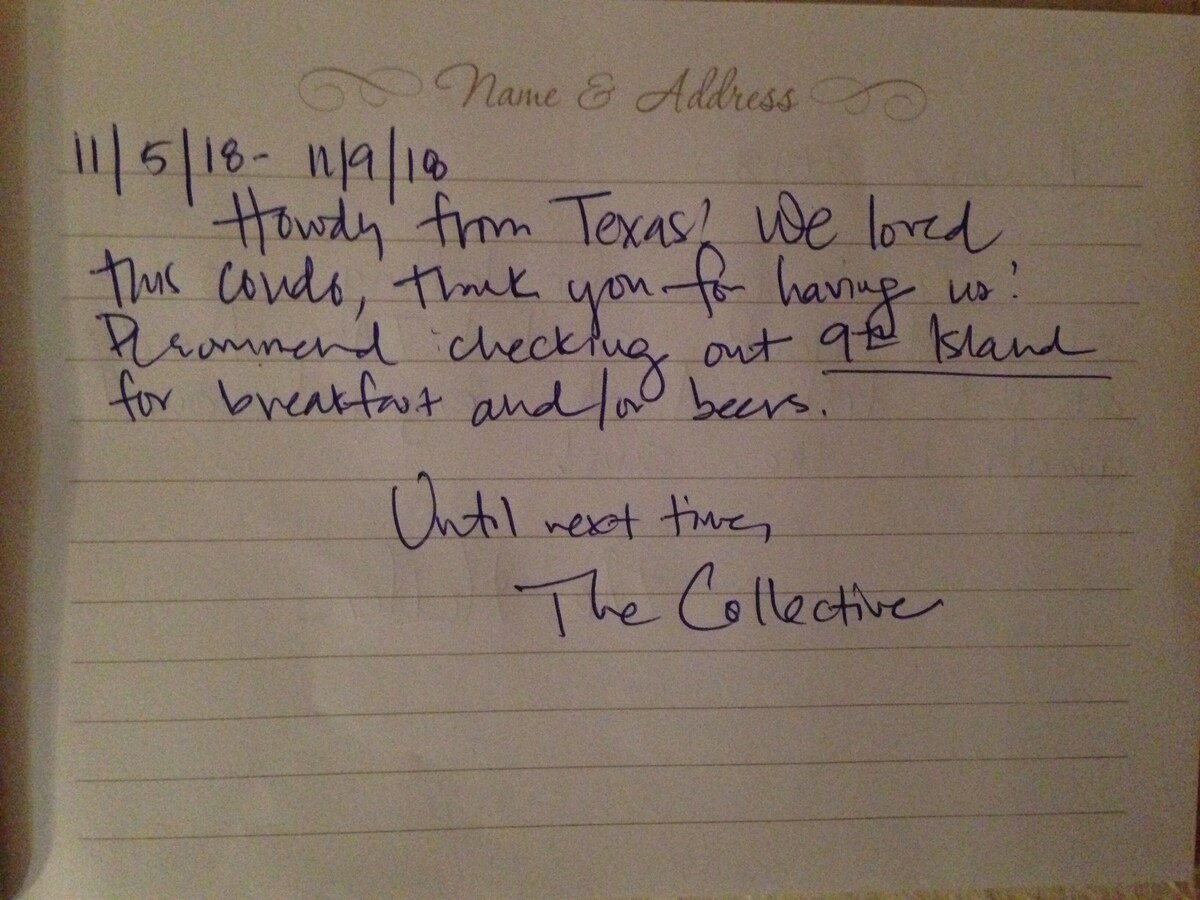 Name & Address
11/5/18- 11/9/18
Howdy from Texas! We loved
this condo, thank you for having us!
Recommend checking out 9th Island
for breakfast and/or beers.
Until next time,
The Collective